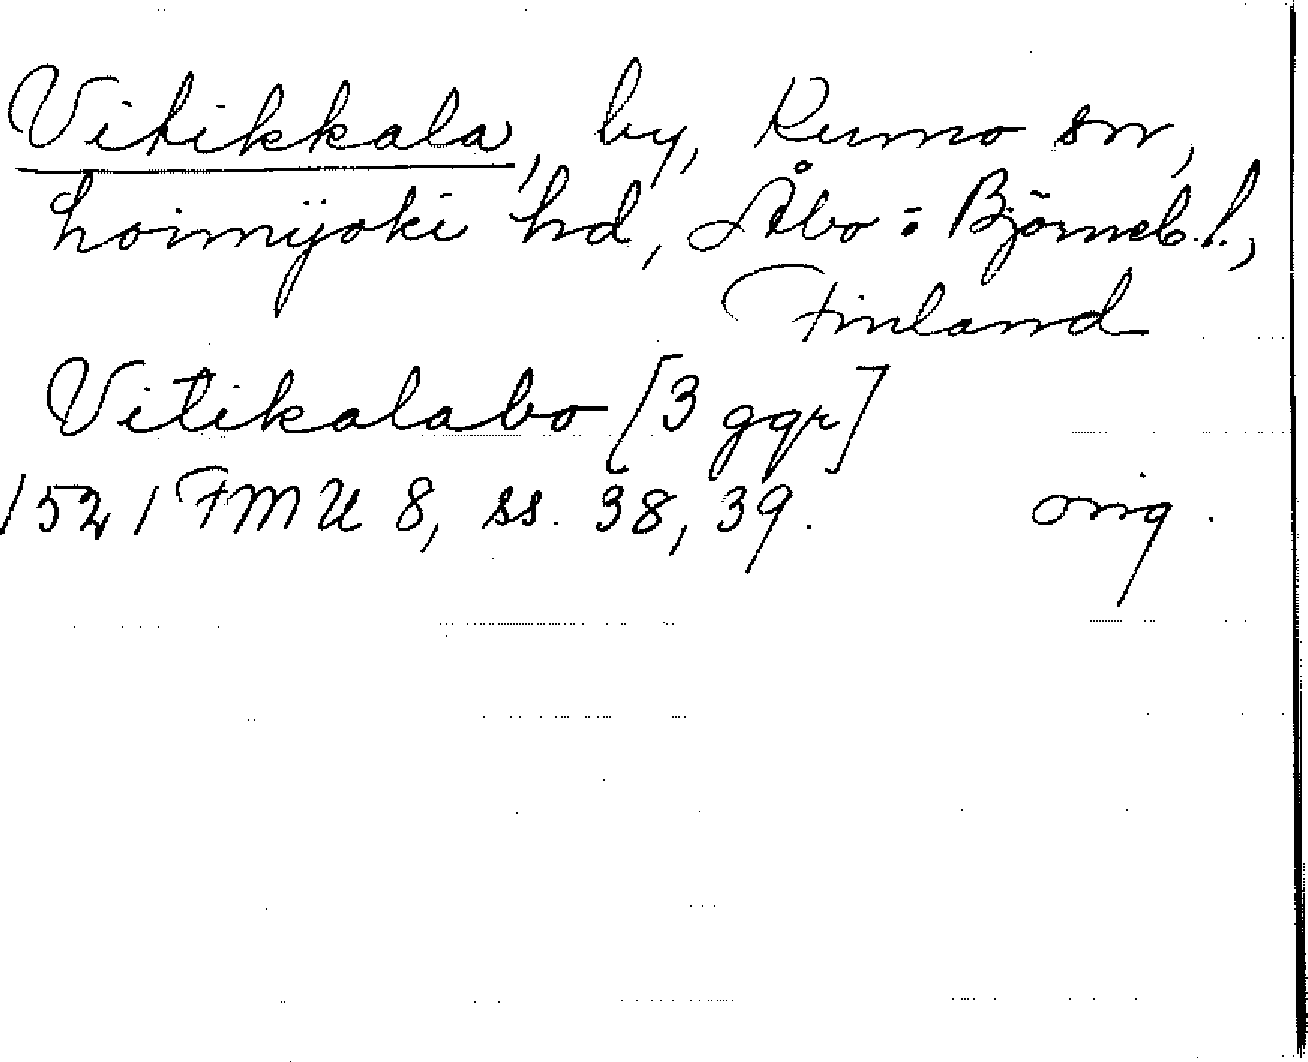 Vitikkala, by, Rumo sn,
Loimijoki hd, Åbo=Björneb. l.,
Finland
Vitikalabo [3 ggr]
1521 FMU 8, ss. 38, 39. orig.